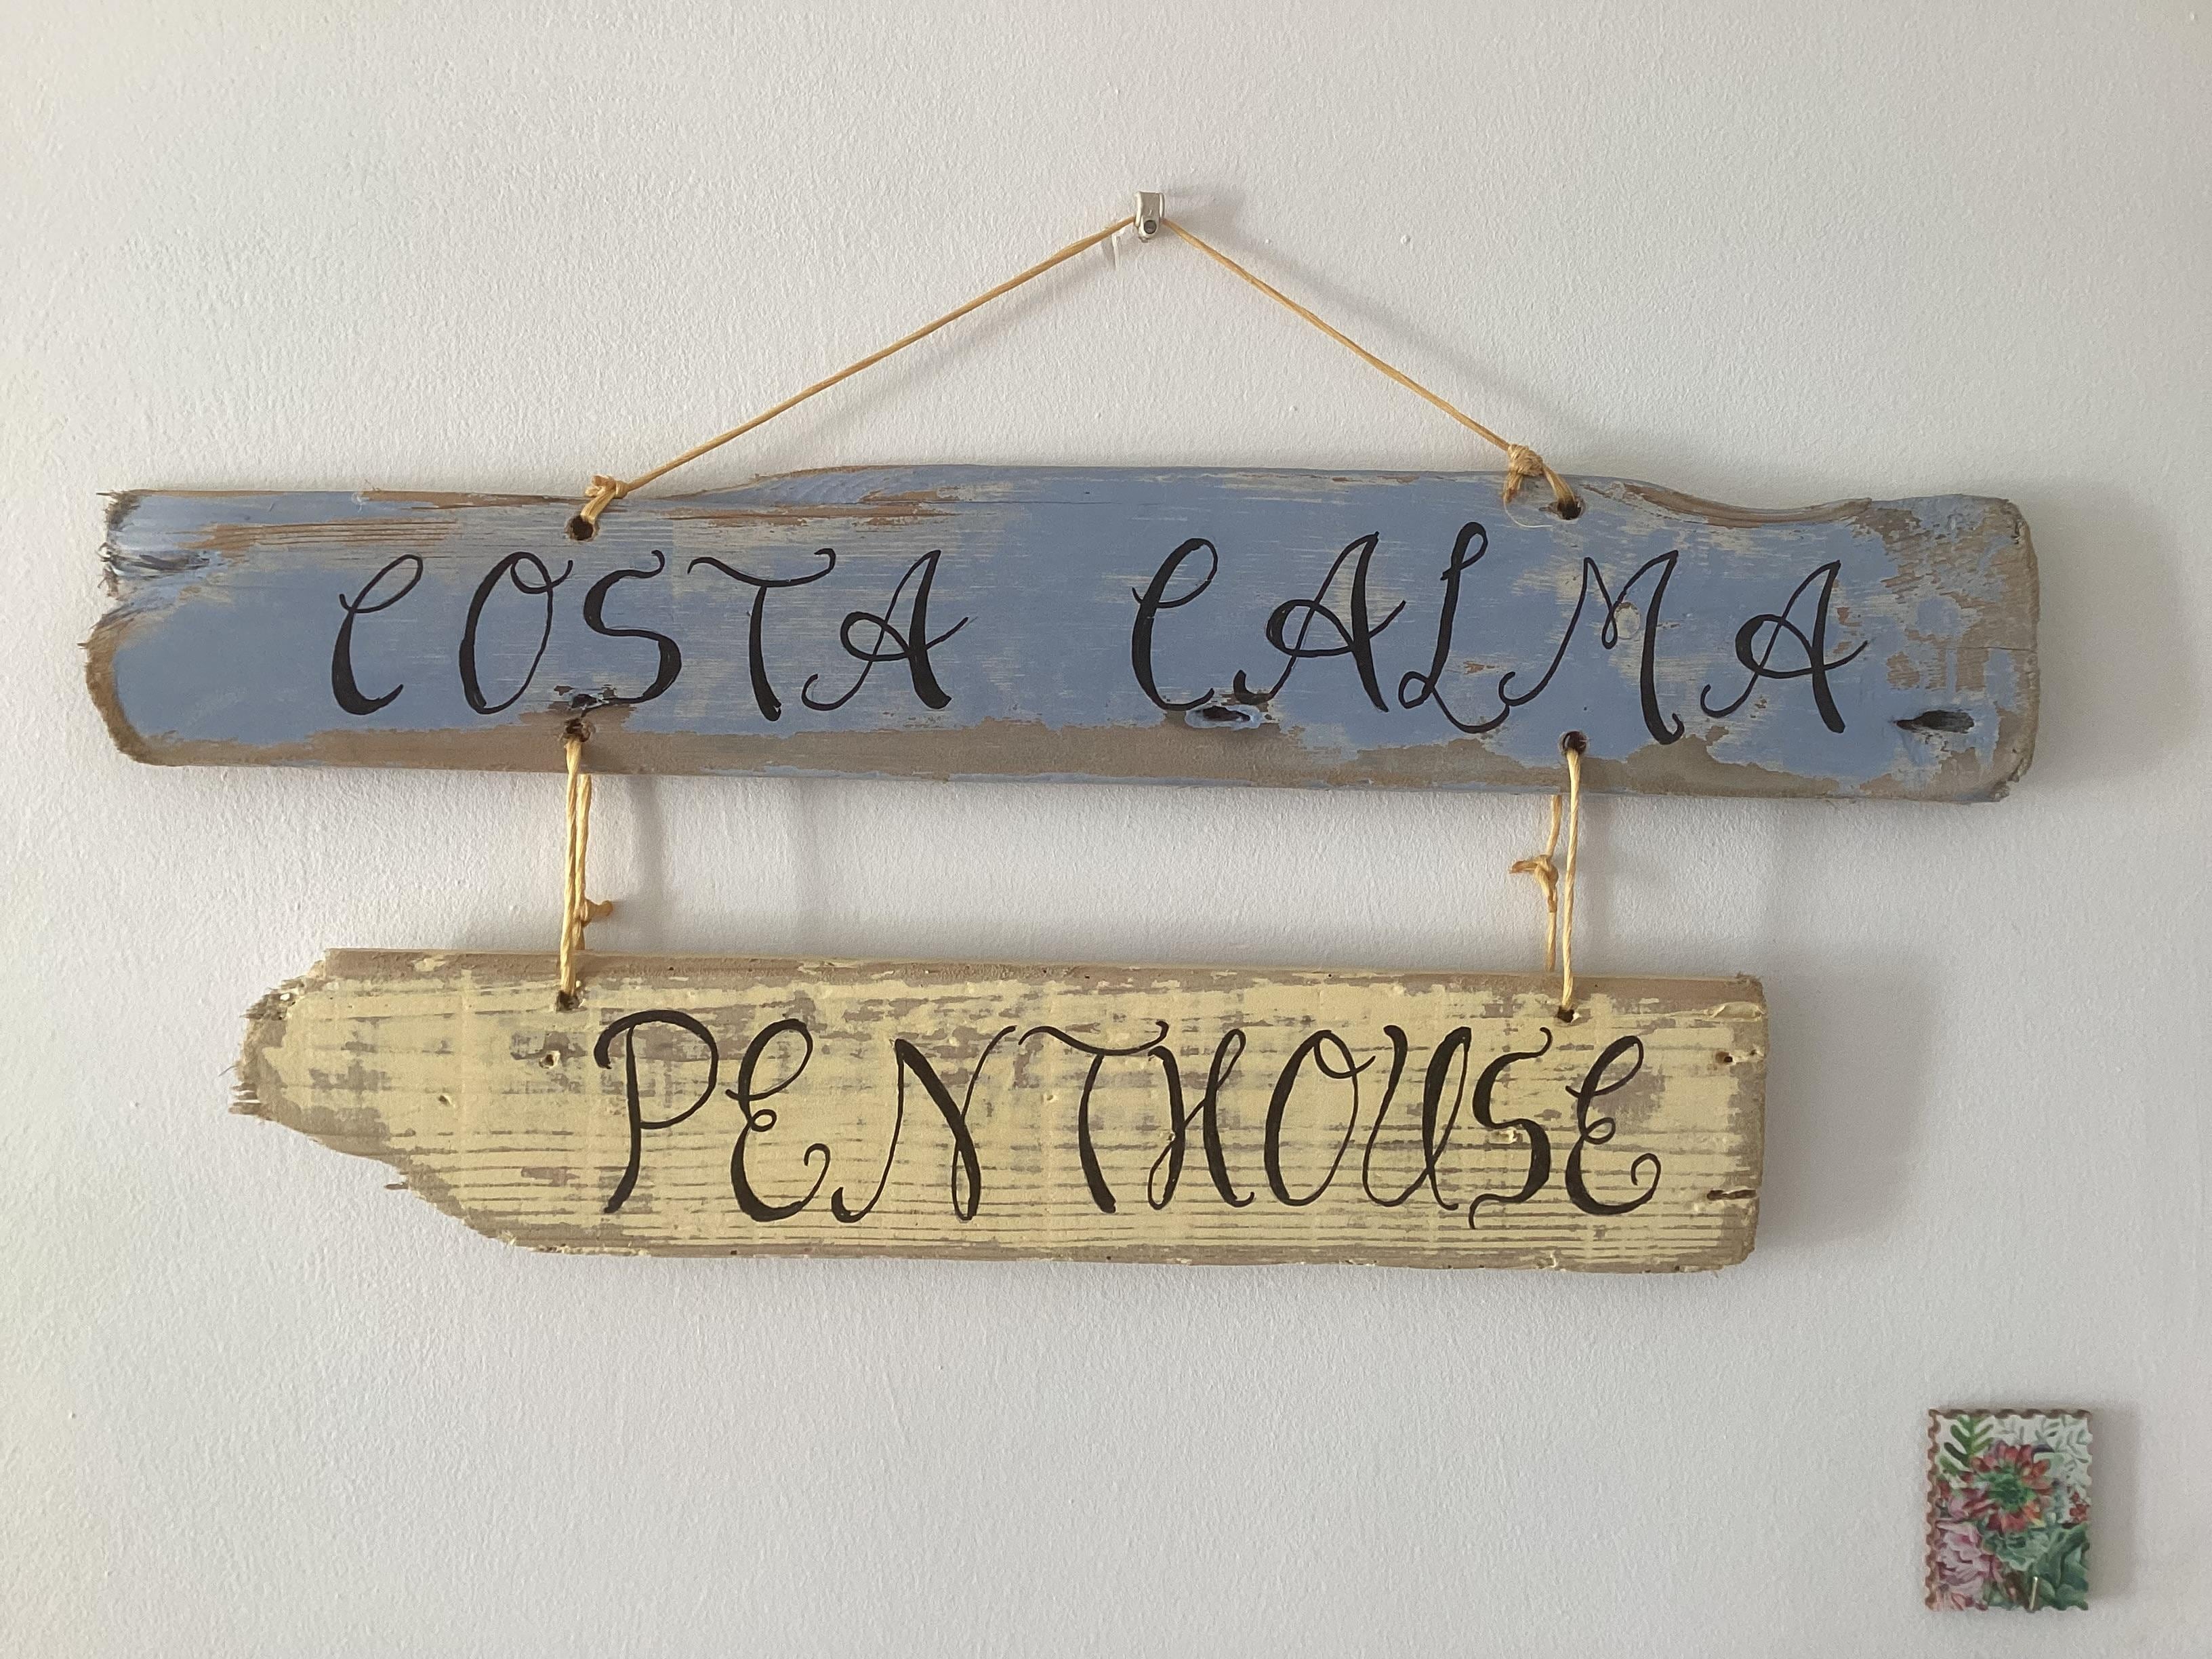 COSTA CALMA
PENTHOUSE